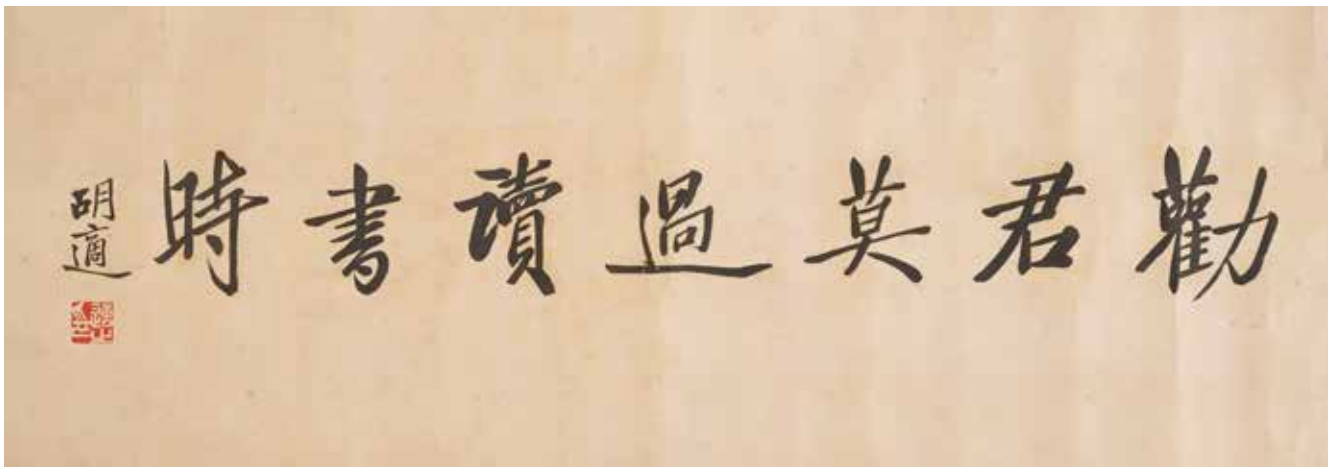 勸君莫過讀書時
胡適